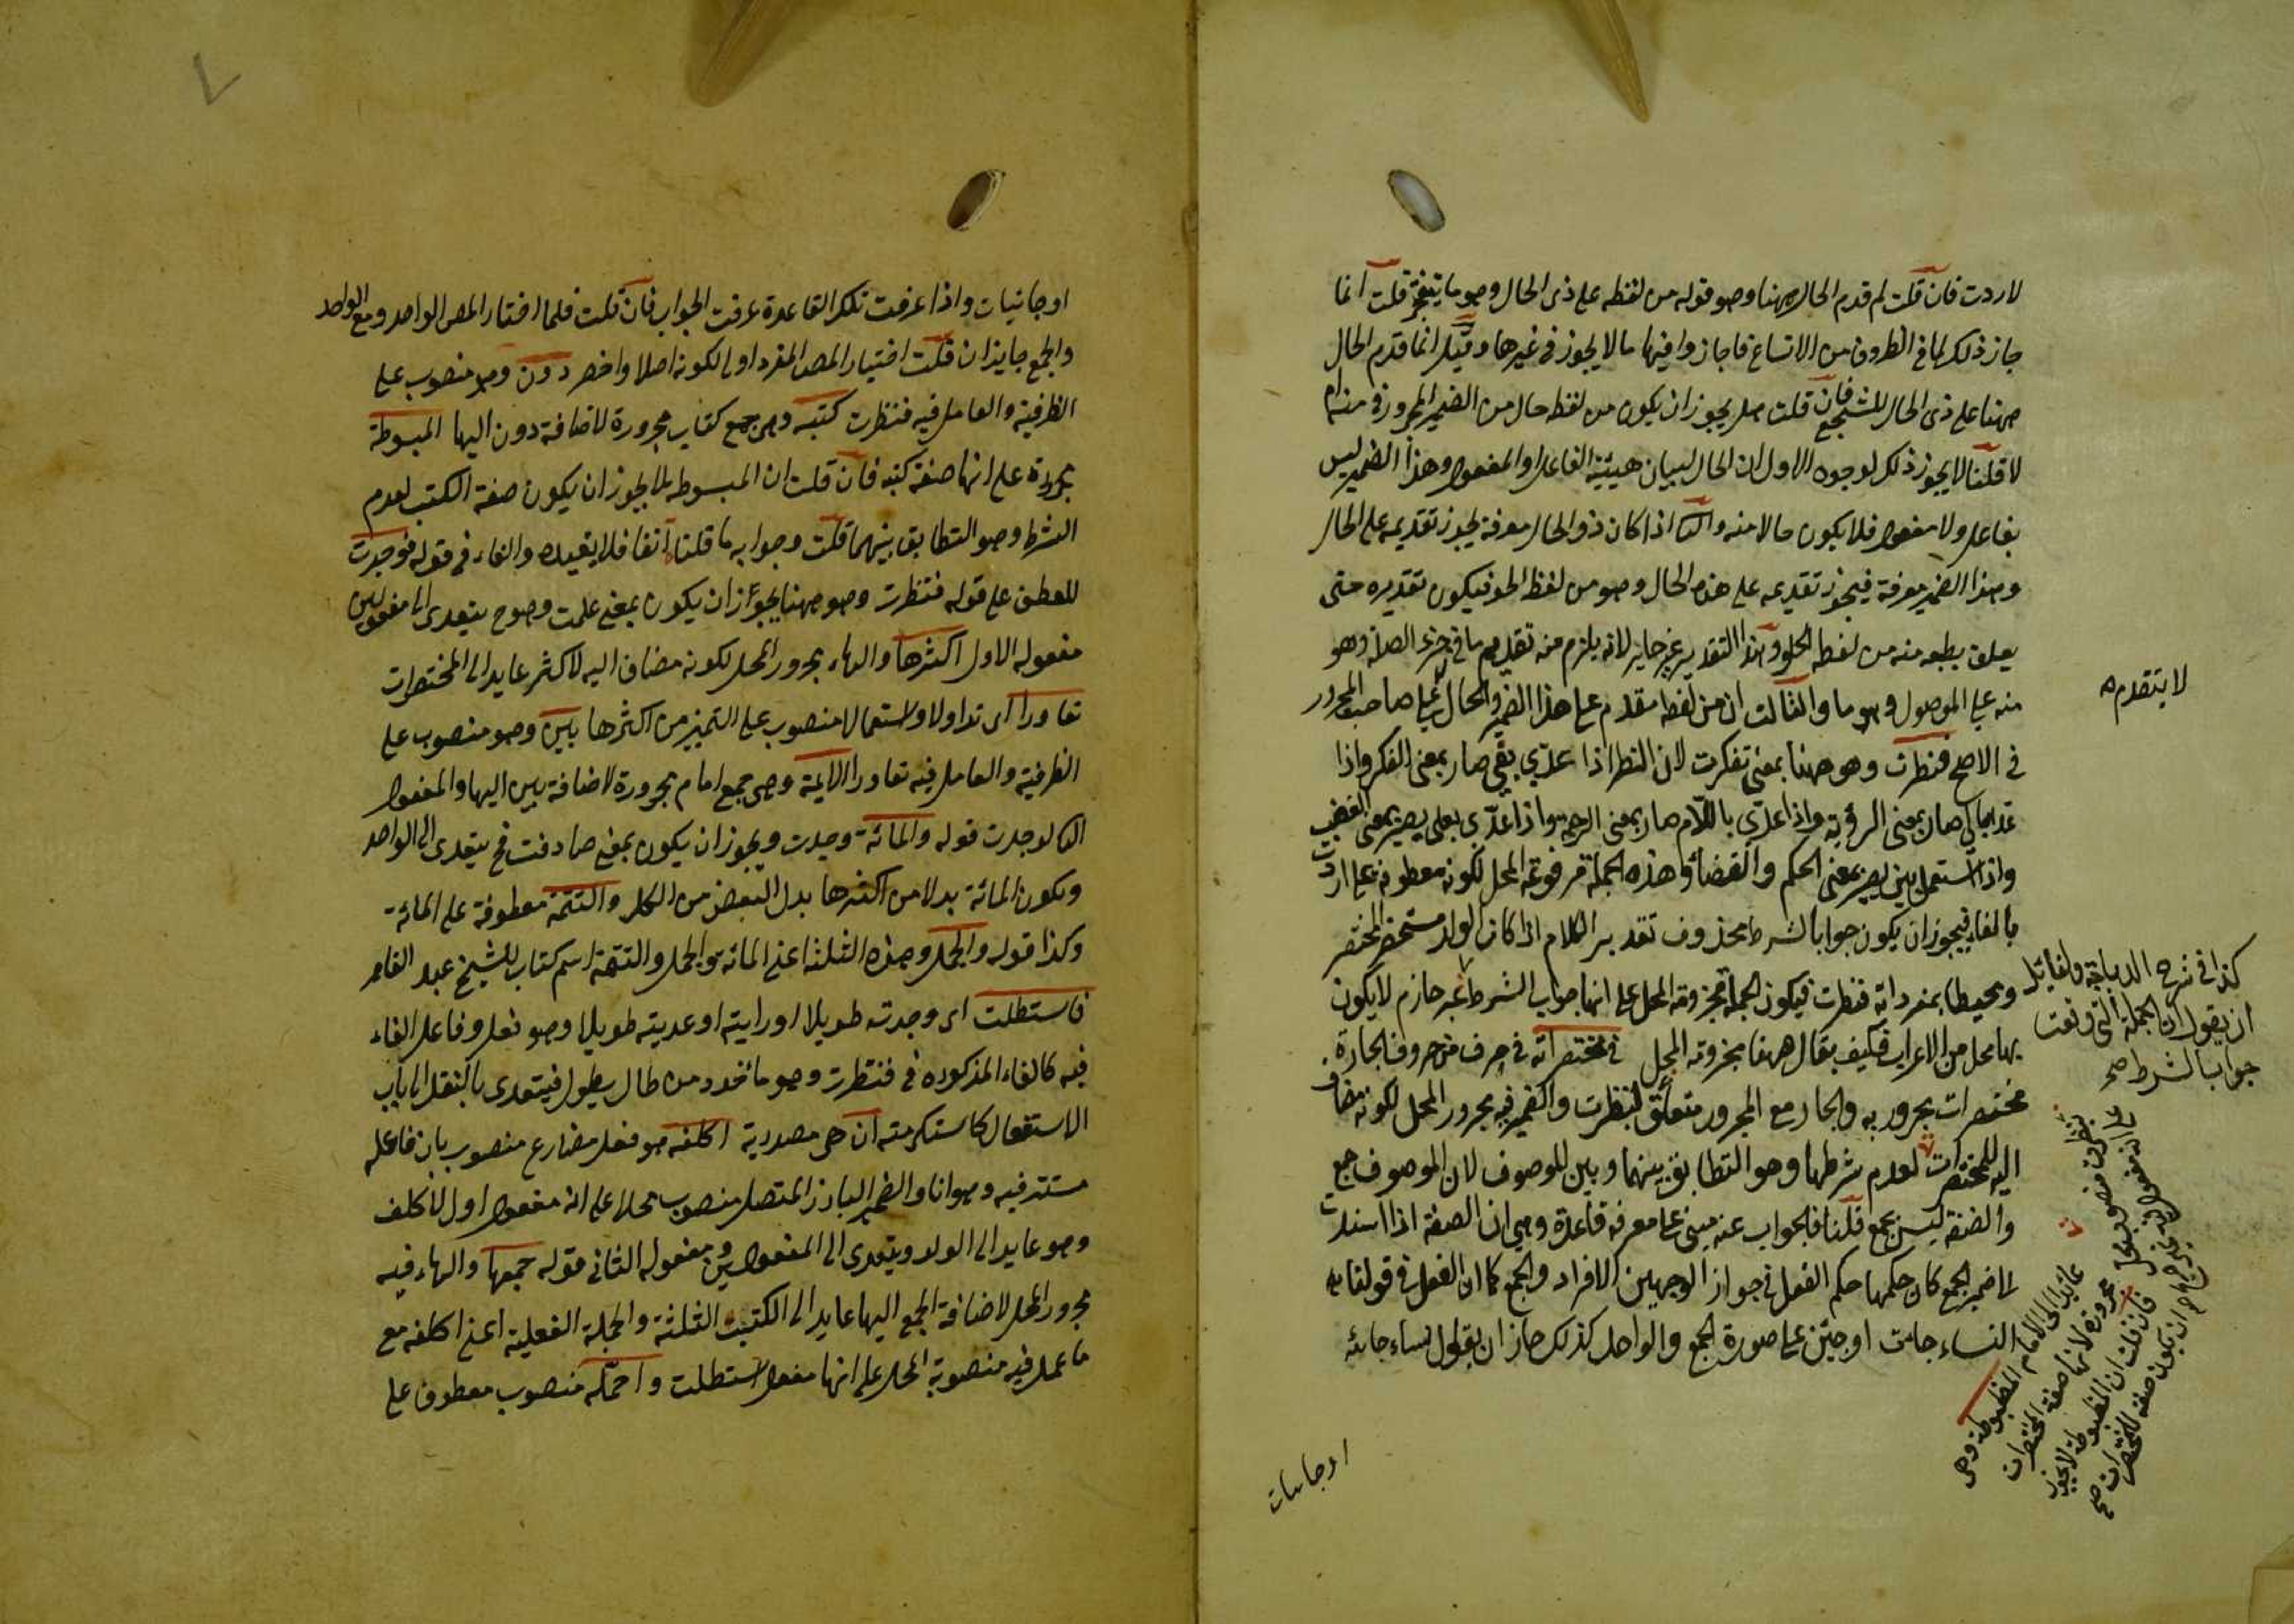 لاردت فان قلت لم قدم الحال ههنا وهو قوله من لفظه على ذى الحال وهو ما يتفجر قلت انما
جاز ذلك لما فى الظروف من الاتساع فاجازوا فيها ما لا يجوز فى غيرها وقيل انما قدم الحال
ههنا على ذى الحال للتسجيع فان قلت هل يجوز ان يكون من لفظه حال من الضمير المجرور فى منه ام
لا قلنا لا يجوز ذلك لوجوه الاول ان الحال لبيان هيئية الفاعل او المفعول وهذا الضمير ليس
بفاعل ولا مفعول فلا يكون حالا منه والثا اذا كان ذو الحال معرفة يجوز تقديمه على الحال
وهذا الضمير معرفة فيجوز تقديمه على هذه الحال وهو من لفظ الحلو فيكون تقديره حتى
يعلق بطبعه منه من لفظه الحلو وهذا التقدير غير جايز لانه يلزم منه تقديم ما فى حيز الصلة وهو
منه على الموصول وهو ما والثالث ان من لفظه مقدم على هذا الضمير والحال على صاحبه المجرور
لا يتقدم
فى الاصح فنظرت وهو ههنا بمعنى تفكرت لان النظر اذا عدّي بفى صار بمعنى الفكر واذا
عدى بالى صار بمعنى الرؤية واذا عدّى باللام صار بمعنى الرحمة واذا عدّى بعلى يصير بمعنى الغضب
واذا استعمل ببين يصير بمعنى الحكم والقضاء وهذه الجملة مرفوعة المحل لكونه معطوفة على اردت
بالفاء فيجوز ان يكون جوابا لشرط محذوف تقدير الكلام اذا كان الولد مستحضر المختصر
ومحيطا بمفرداته فنظرت فيكون الجملة مجزومة المحل على انها جواب الشرط غير جازم لا يكون
كذا فى شرح الديباجة ولقائل
ان يقول ان الجملة التى وقعت
جوابا لشرط صح
بها محل من الاعراب فكيف يقال ههنا مجزومة المحل فى مختصراته فى حرف من حروف الجارة
مختصرات مجرور به والجار مع المجرور متعلق لنظرت والضمير فيه مجرور المحل لكونه مضاف
اليه للمختصرات لعدم شرطها وهو التطابق بينهما وبين للموصوف لان الموصوف جمع
والصفة ليس بجمع قلنا فالجواب عنه مبنى على معرفة قاعدة وهى ان الصفة اذا اسندت
لما ضمير الجمع كان حكمها حكم الفعل فى جواز الوجهين الافراد والجمع كما ان الفعل فى قولنا
النساء جاءت او جئن على صورة الجمع والواحد كذلك جاز ان يقول نساء جائية
عايد الى الامام المضبوطة وهى
مجرورة لانها صفة المختصرات
فان قلت ان المضبوطة لا يجوز
ان يكون صفة للمختصرات صح
اوجائيات
اوجائيات واذا عرفت تلك القاعدة عرفت الجواب فان قلت فلما اختار المص الواحد ومع الواحد
والجمع جايزان قلت اختيار المص المفرد اولى لكونه اصلا واخصر دون وهو منصوب على
الظرفية والعامل فيه فنظرت كتبه وهى جمع كتاب مجرورة لاضافة دون اليها المبسوطة
مجرورة على انها صفة كتبه فان قلت ان المبسوطه لا يجوز ان يكون صفة الكتب لعدم
الشرط وهو التطابق بينهما قلت وجوابه ما قلناه آنفا فلا يفيده والفاء فى قوله فوجدت
للعطف على قوله فنظرت وهو ههنا يجوز ان يكون بمعنى علمت وهو ح يتعدى الى مفعولين
مفعوله الاول اكثرها والهاء مجرور المحل لكونه مضاف اليه لاكثر عايد الى المختصرات
تعاورا اى تداولا واستعمالا منصوب على التميز من اكثرها بين وهو منصوب على
الظرفية والعامل فيه تعاورا الائمة وهى جمع امام مجرورة لاضافة بين اليها والمفعول
الثا لوجدت قوله والمائة وجدت ويجوز ان يكون بمعنى صادفت فح يتعدى الى الواحد
ويكون المائة بدلا من اكثرها بدل البعض من الكل والتتمة معطوفة على المائة
وكذا قوله والجمل وهذه الثلثة اعنى المائة والجمل والتتمة اسم كتاب للشيخ عبد القاهر
فاستطلت اى وجدته طويلا او رايته او عديته طويلا وهو فعل وفاعل الفاء
فيه كالفاء المذكوره فى فنظرت وهو ماخوذ من طال يطول فيتعدى بالنقل الى باب
الاستفعال كاستكرمته ان هى مصدرية اكلفه هو فعل مضارع منصوب بان فاعله
مستتر فيه وهو انا والضمير البارز المتصل منصوب محلا على انه مفعول اول لاكلف
وهو عايد الى الولد ويتعدى الى المفعولين ومفعوله الثانى قوله جمعها والهاء فيه
مجرور المحل لاضافة الجمع اليها عايد الى الكتب الثلثة والجملة الفعلية اعنى اكلفه مع
ما عمل فيه منصوبة المحل على انها مفعول استطلت واحمله منصوب معطوف على